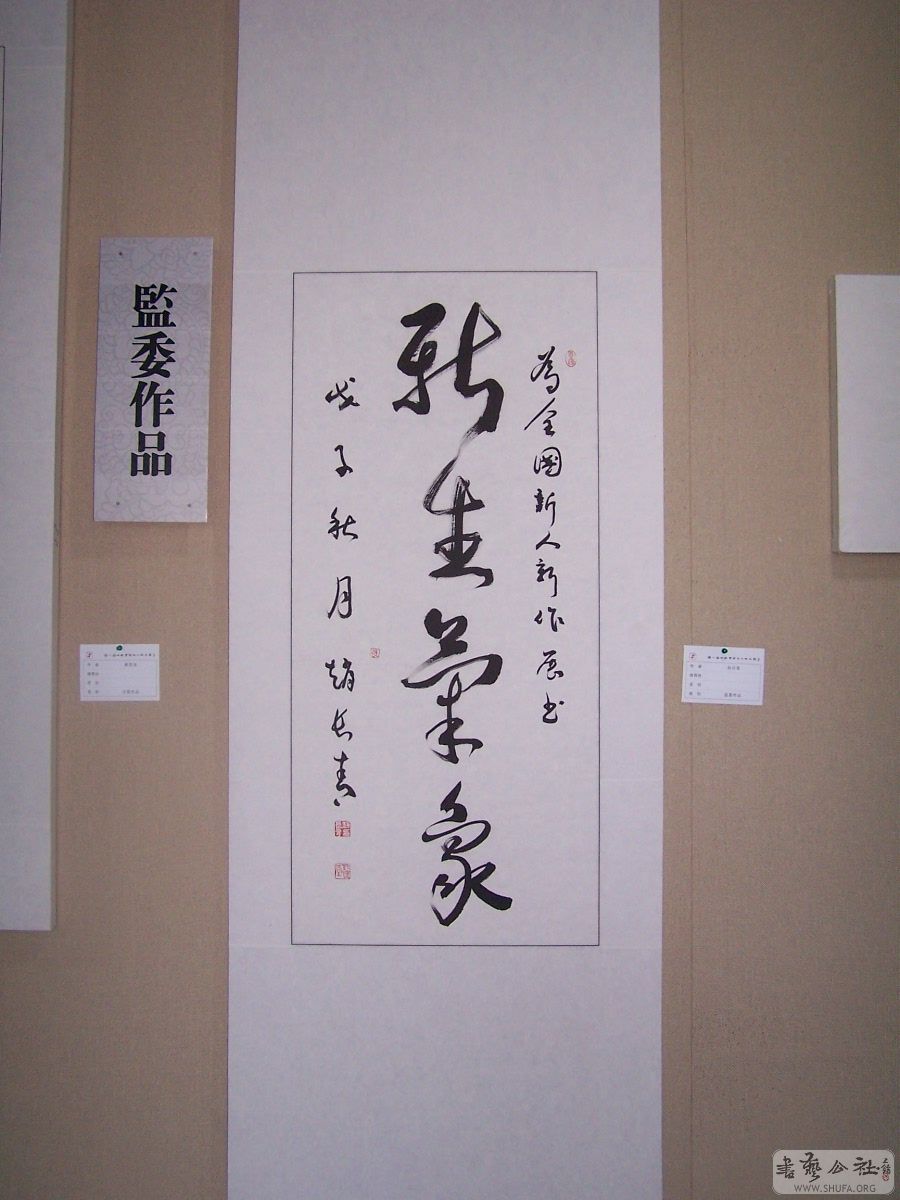 監委作品
為全國新人新作展书
新生氣象
戊子秋月 趙长青
書藝公社
WWW.SHUFA.ORG